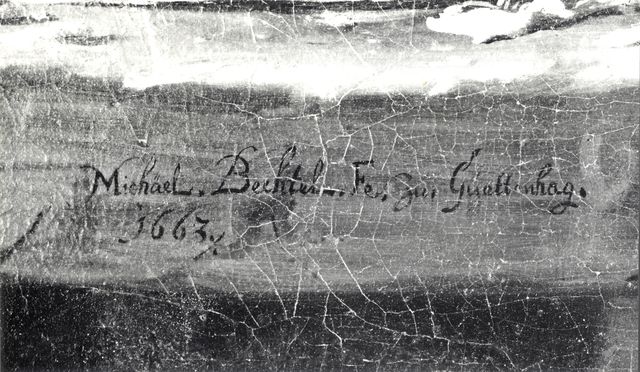 Michäel. Bechtel. Fe. Zu, Guettenhag.
1663